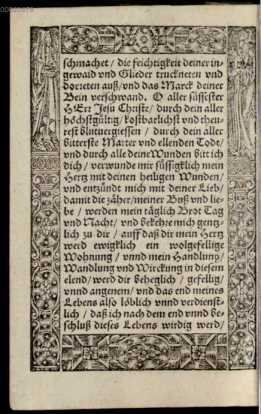 schmachet / die feichtigkeit deiner in⸗
gewaid vnd Glieder truckneten vnd
dorreten auß / vnd das Marck deiner
Bein verschwand. O aller süssester
HErr Jesu Christe / durch dein aller
höchstgültig / kostbarlichst vnd theu⸗
rest blutuergiessen / durch dein aller
bitterste Marter vnd ellenden Todt /
vnd durch alle deine Wunden bitt ich
dich / verwunde mir süssigklich mein
Hertz mit deinen heiligen Wunden /
vnd entzündt mich mit deiner Lieb /
damit die zäher / meiner Buß vnd lie⸗
be / werden mein täglich Brot Tag
vnd Nacht / vnd bekehre mich gentz⸗
lich zu dir / auff daß dir mein Hertz
werd ewigklich ein wolgefellige
Wohnung / vnnd mein Handlung /
Wandlung vnd Wirckung in diesem
elend / werd dir beheglich / gefellig /
vnnd angenem / vnd das end meines
Lebens also löblich vnnd verdienst⸗
lich / daß ich nach dem end vnnd be⸗
schluß dieses Lebens wirdig werd /